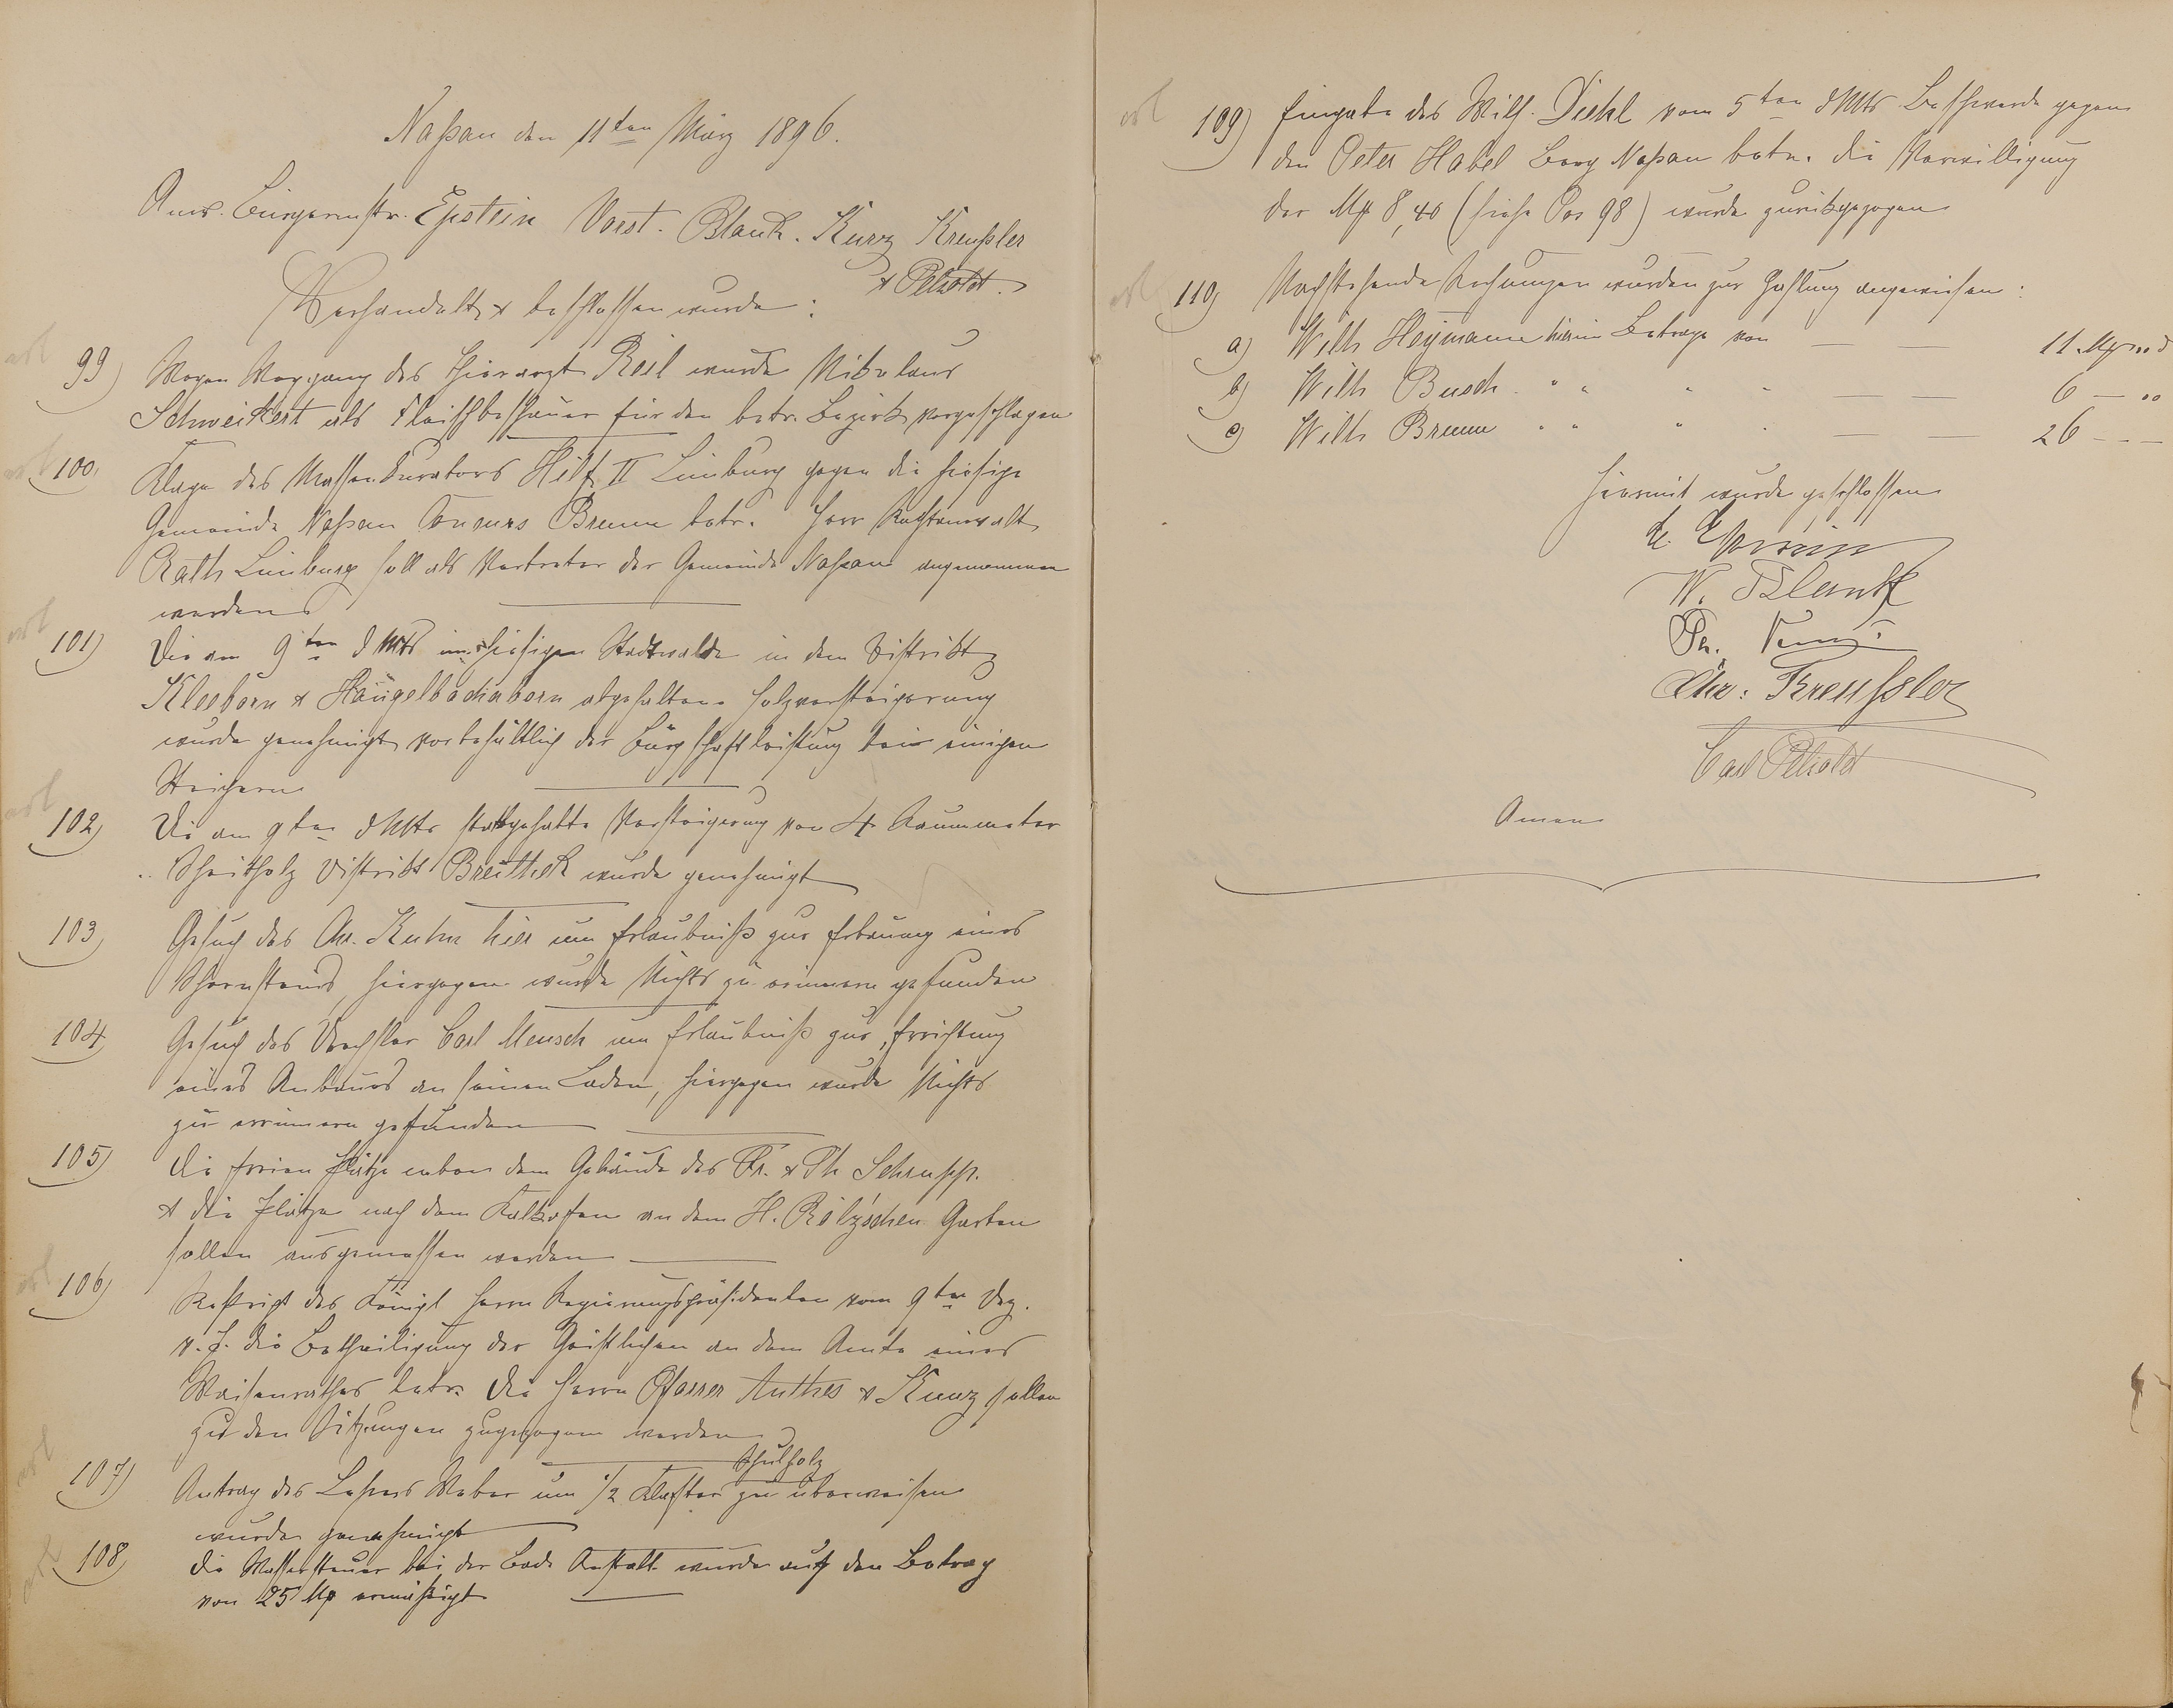 Naßau den 11ten März 1896.
Anw. Bürgermstr. Epstein Vorst. Blank. Kurz Kreußler
& Petzoldt.
Verhandelt & beschlossen wurde:
99) Wegen Weggang des Thierarzt Reil wurde Nikolaus
Schweikert als Fleischbeschauer für den betr. Bezirk vorgeschlagen
100, Klage des Massenkurators Hilf II Limburg gegen die hiesige
Gemeinde Naßau Concurs Bremm betr. Herr Rechtsanwalt
Rath Limburg soll als Vertreter der Gemeinde Naßau angenommen
werden
101) Die am 9ten d Mts im hiesigen Stadtwalde in dem Distrikt
Kleeborn & abgehaltene Holzversteigerung
wurde genehmigt vorbehältlich der Bürgschaftleistung bei einigen
Steigern
102) Die am 9ten d Mts stattgehabte Versteigerung von 4 Raummeter
Scheitholz Distrikt wurde genehmigt
103, Gesuch des Chr. Kuhn hier um Erlaubniß zur Erbauung eines
Schornsteins, hiergegen wurde Nichts zu erinnern gefunden
104, Gesuch des Drechsler Carl Mensch um Erlaubniß zur Errichtung
eines Anbaues an seinen Laden, hiergegen wurde Nichts
zu erinnern gefunden
105) Die freien Plätze neben dem Gebäude des Fr. & Ph Schrupp.
& die Plätze nach dem Kalkofen an dem H. Rölz'schen Garten
sollen ausgemessen werden
106) Reskript des Königl Herrn Regierungspräsidenten vom 9ten Dez.
v. J. die Betheiligung der Geistlichen an dem Amte eines
Waisenrathes betr. Die Herrn Pfarrer Anthes & Kunz sollen
zu den Sitzungen zugezogen werden
107) Antrag des Lehrers Weber um 1/2 Klafter Schulholz zu überweisen
wurde genehmigt
108, Die Wassersteuer bei der Bade Anstalt wurde auf den Betrag
von 25 Mk ermäßigt
109) Eingabe des Wilh. Diehl vom 5ten d Mts Beschwerde gegen
den Peter Habel Berg Naßau betr. die Verwilligung
der Mk 8,40 (siehe Pos 98) wurde zurückgezogen
110, Nachstehende Rechnungen wurden zur Zahlung angewiesen:
a) Wilh Heymann hier im Betrage von — — 11 Mk
b) Wilh Busch " " " " — — 6 — "
c) Wilh Bremm " " " " — — 26 — —
Hiermit wurde geschlossen
Epstein
W. Blank
Ph. Kurz.
Chr: Kreußler
Carl Petzoldt
Amen